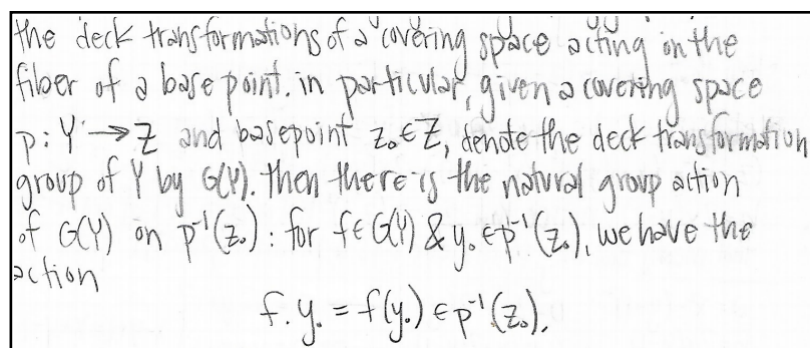 the deck transformations of a covering space acting on the
fiber of a basepoint. in particular, given a covering space
p: Y → Z and basepoint z₀ ∈ Z, denote the deck transformation
group of Y by G(Y). Then there is the natural group action
of G(Y) on p⁻¹(z₀): for f ∈ G(Y) & y₀ ∈ p⁻¹(z₀), we have the
action
f. y₀ = f(y₀) ∈ p⁻¹(z₀).